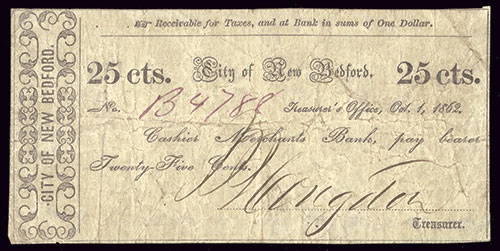 ☞ Receivable for Taxes, and at Bank in sums of One Dollar.
CITY OF NEW BEDFORD.
25 cts. City of New Bedford. 25 cts.
No. B 4788 Treasurer's Office, Oct. 1, 1862.
Cashier Merchants Bank, pay bearer
Twenty-Five Cents.
Treasurer.